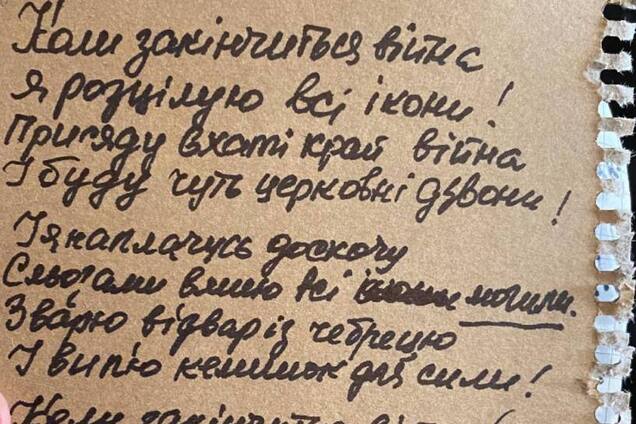 Коли закінчиться війна
Я розцілую всі ікони!
Присяду в хаті край війна
І буду чуть церковні дзвони!
І я наплачусь доскочу
Сльозами вмию всі могили.
Зварю відвар із чебрецю
І вип'ю келишок для сили!
Коли закінчиться